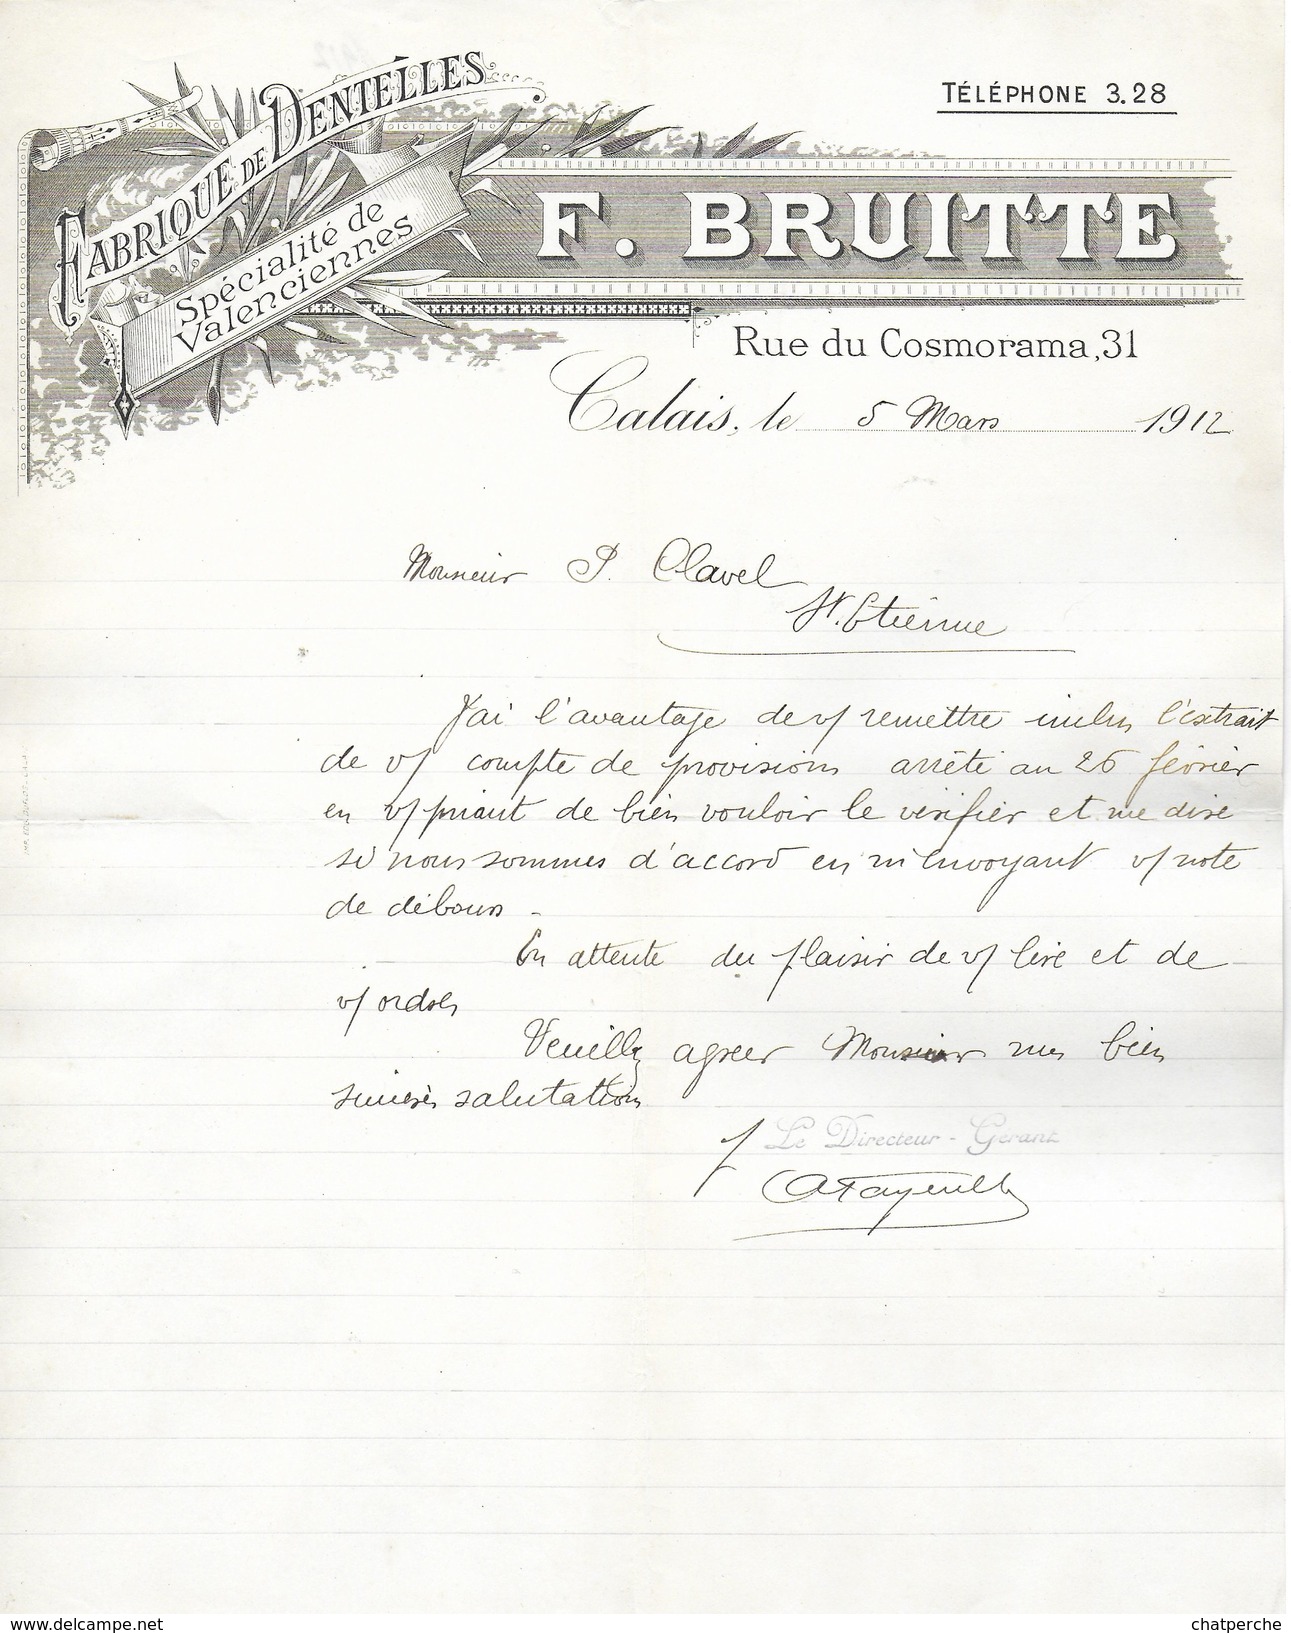 TÉLÉPHONE 3.28
FABRIQUE DE DENTELLES
Spécialité de
Valenciennes
F. BRUITTE
Rue du Cosmorama, 31
Calais, le 5 Mars 1912
Monsieur P. Clavel
St. Etienne
J'ai l'avantage de v/ remettre inclus l'extrait
de v/ compte de provisions arrêté au 26 février
en v/ priant de bien vouloir le vérifier et me dire
si nous sommes d'accord en m'envoyant v/ note
de débours -
En attente du plaisir de v/ lire et de
v/ ordres
Veuillez agréer Monsieur mes bien
sincères salutations
Le Directeur - Gérant
delcampe.net
chatperche